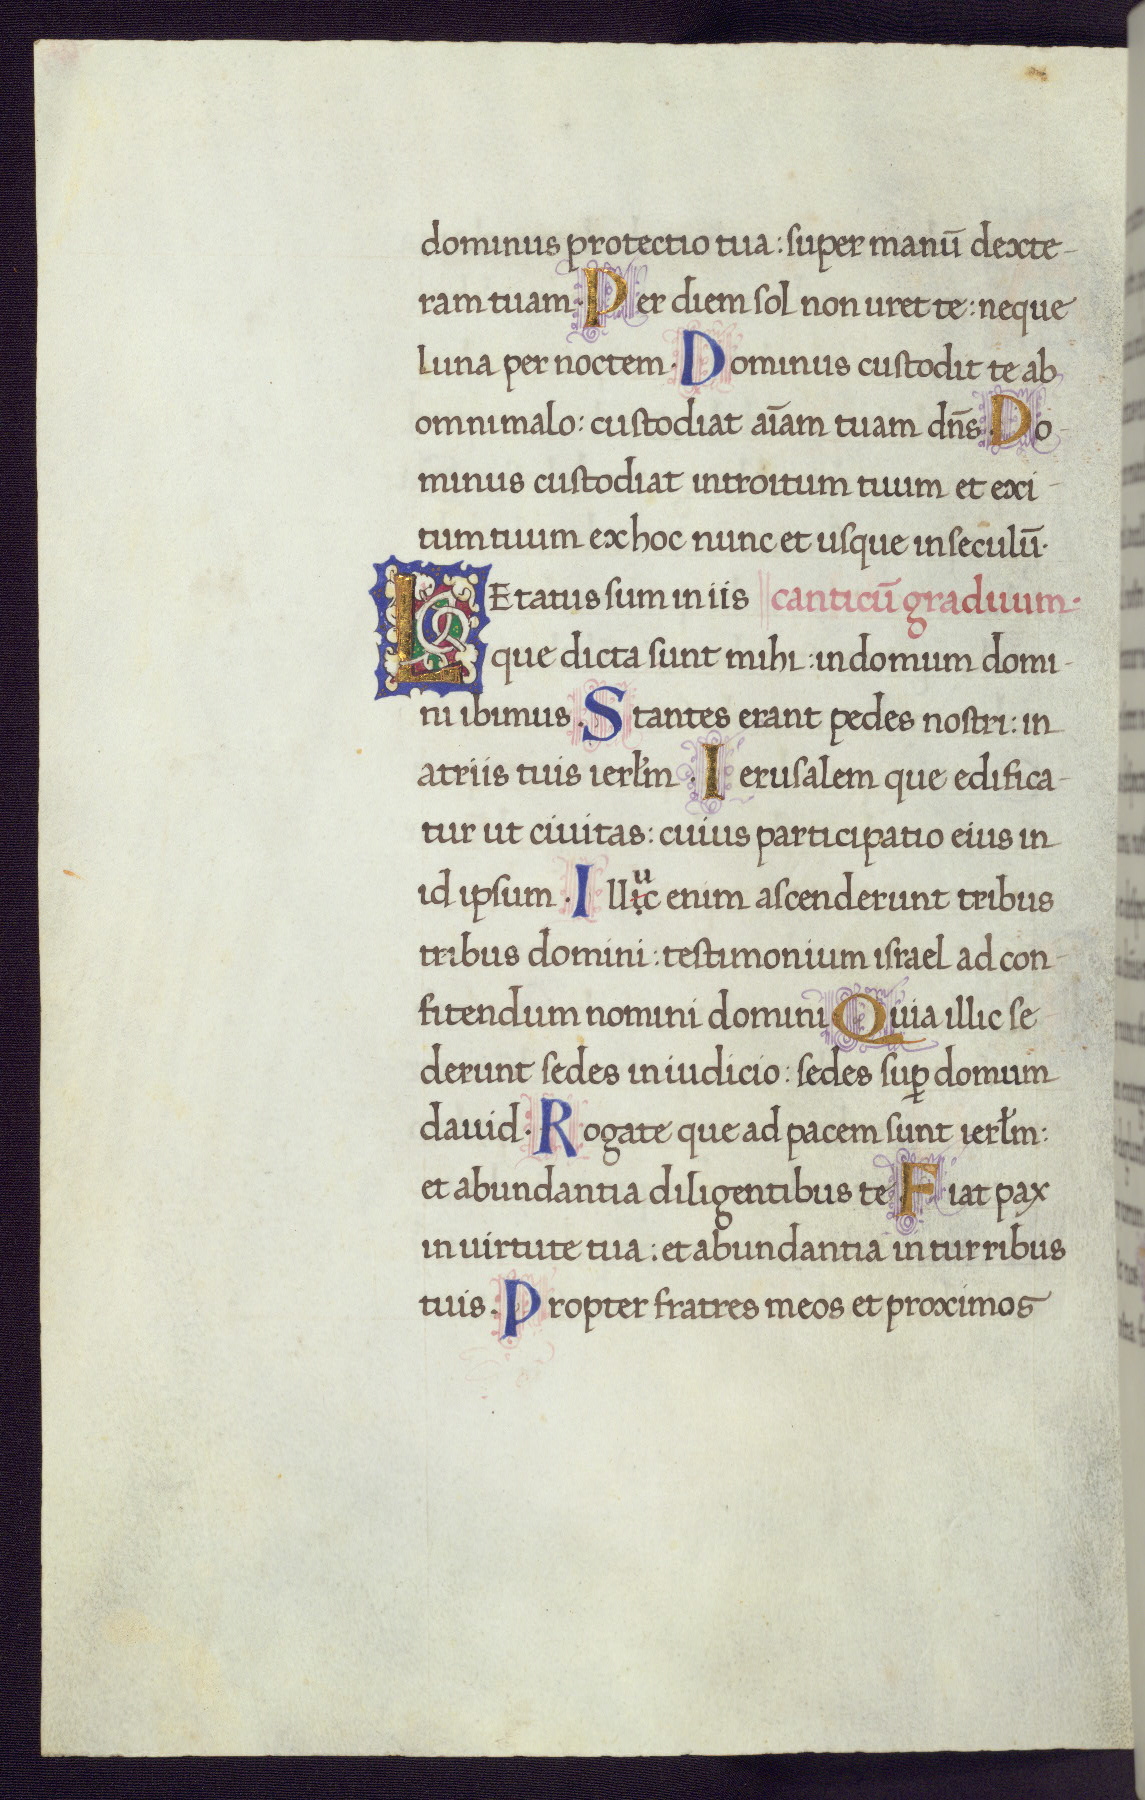 dominus protectio tua: super manū dexte-
ram tuam. Per diem sol non uret te: neque
luna per noctem. Dominus custodit te ab
omni malo: custodiat aīam tuam dn̄s. Do-
minus custodiat introitum tuum et exi-
tum tuum ex hoc nunc et usque in seculū.
LEtatus sum in iis canticū graduum.
que dicta sunt mihi: in domum domi-
ni ibimus. Stantes erant pedes nostri: in
atriis tuis ierłm. Ierusalem que edifica-
tur ut ciuitas: cuius participatio eius in
id ipsum. Illuc enim ascenderunt tribus
tribus domini: testimonium israel ad con-
fitendum nomini domini Quia illic se
derunt sedes in iudicio: sedes sup̱ domum
dauid. Rogate que ad pacem sunt ierłm:
et abundantia diligentibus te Fiat pax
in uirtute tua: et abundantia in turribus
tuis. Propter fratres meos et proximos